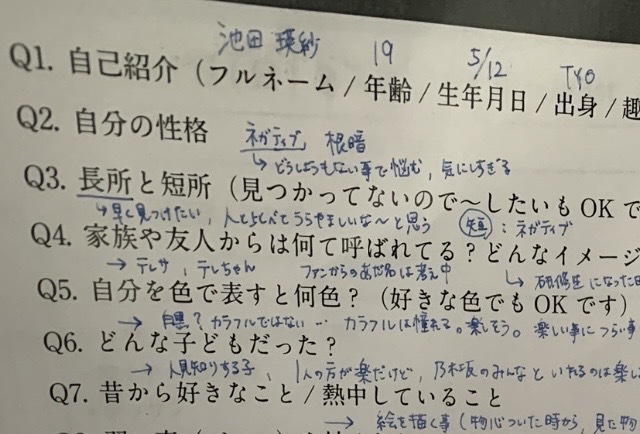 池田 瑛紗 19 5/12 TYO
Q1. 自己紹介（フルネーム / 年齢 / 生年月日 / 出身 / 趣
Q2. 自分の性格 ネガティブ, 根暗
↳ どうしようもない事で悩む, 気にしすぎる
Q3. 長所と短所（見つかってないので〜したいもOKで
↳ 早く見つけたい, 人と比べてうらやましいな〜と思う 短 : ネガティブ
Q4. 家族や友人からは何て呼ばれてる？どんなイメージ
→ テレサ, テレちゃん ファンからのあだ名は考え中 ↳ 研修生になった
Q5. 自分を色で表すと何色？（好きな色でもOKです）
→ 黒？カラフルではない… カラフルは憧れる。楽しそう。楽しい事につらい事
Q6. どんな子どもだった？
→ 人見知りする子, 1人の方が楽だけど, 乃木坂のみんなといれるのは楽し
Q7. 昔から好きなこと / 熱中していること
→ 絵を描く事（物心ついた時から, 見た物